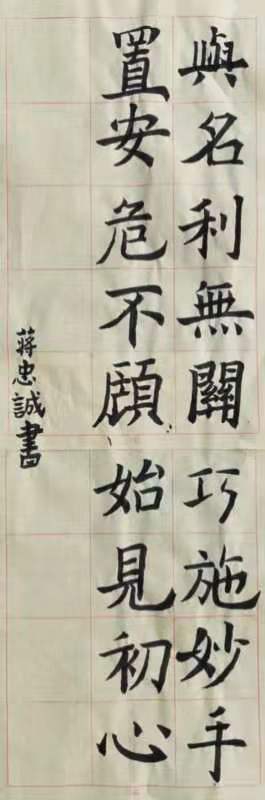 與名利無關巧施妙手
置安危不顧始見初心
蔣忠誠書